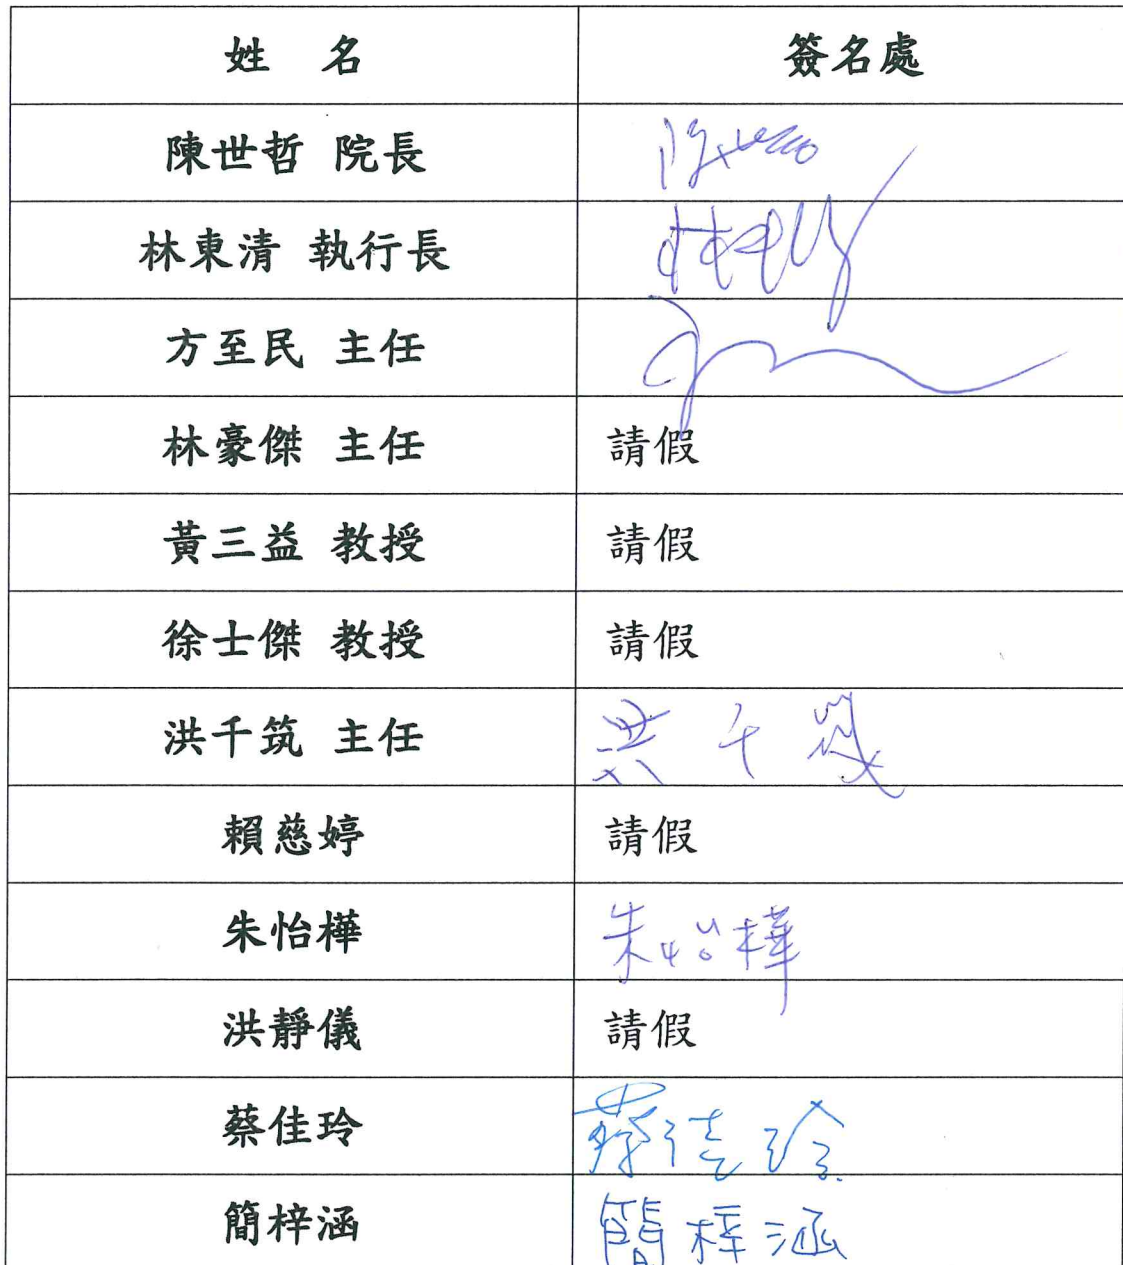 姓 名 簽名處
陳世哲 院長
林東清 執行長
方至民 主任
林豪傑 主任 請假
黃三益 教授 請假
徐士傑 教授 請假
洪千筑 主任 洪千筑
賴慈婷 請假
朱怡樺 朱怡樺
洪靜儀 請假
蔡佳玲 蔡佳玲
簡梓涵 簡梓涵